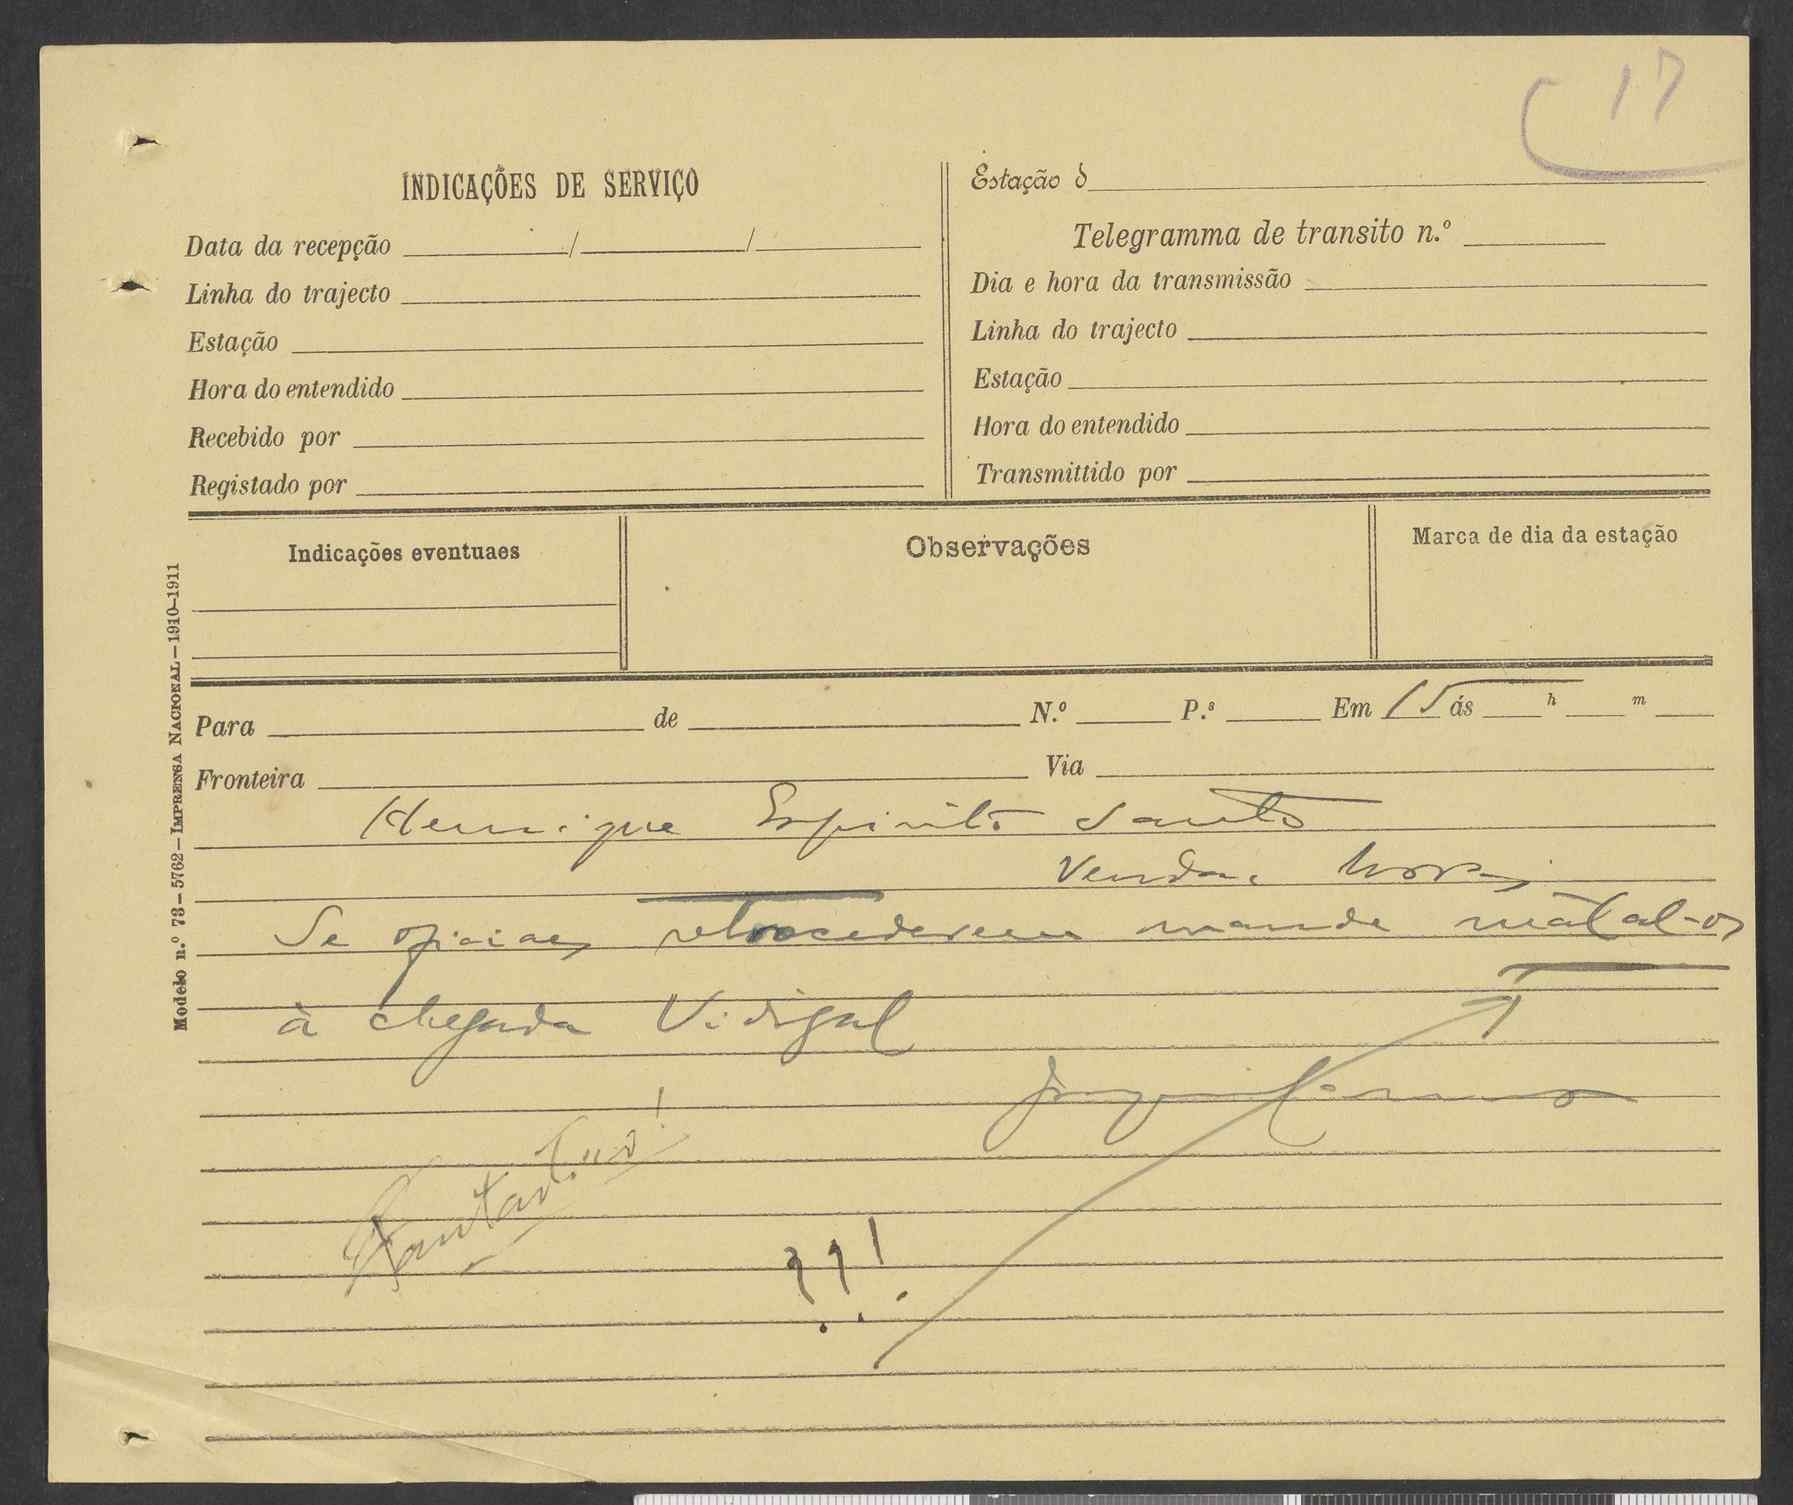 17
INDICAÇÕES DE SERVIÇO
Data da recepção / /
Linha do trajecto
Estação
Hora do entendido
Recebido por
Registado por
Estação d
Telegramma de transito n.º
Dia e hora da transmissão
Linha do trajecto
Estação
Hora do entendido
Transmittido por
Indicações eventuaes
Observações
Marca de dia da estação
Modelo n.º 73—5762—IMPRENSA NACIONAL—1910-1911
Para de N.º P.s Em 15 ás h m
Fronteira Via
Henrique Espirito Santo
Vendas Novas
Se oficiaes retrocederem mande matal-os
à chegada Vidigal
Fantastico!
??!